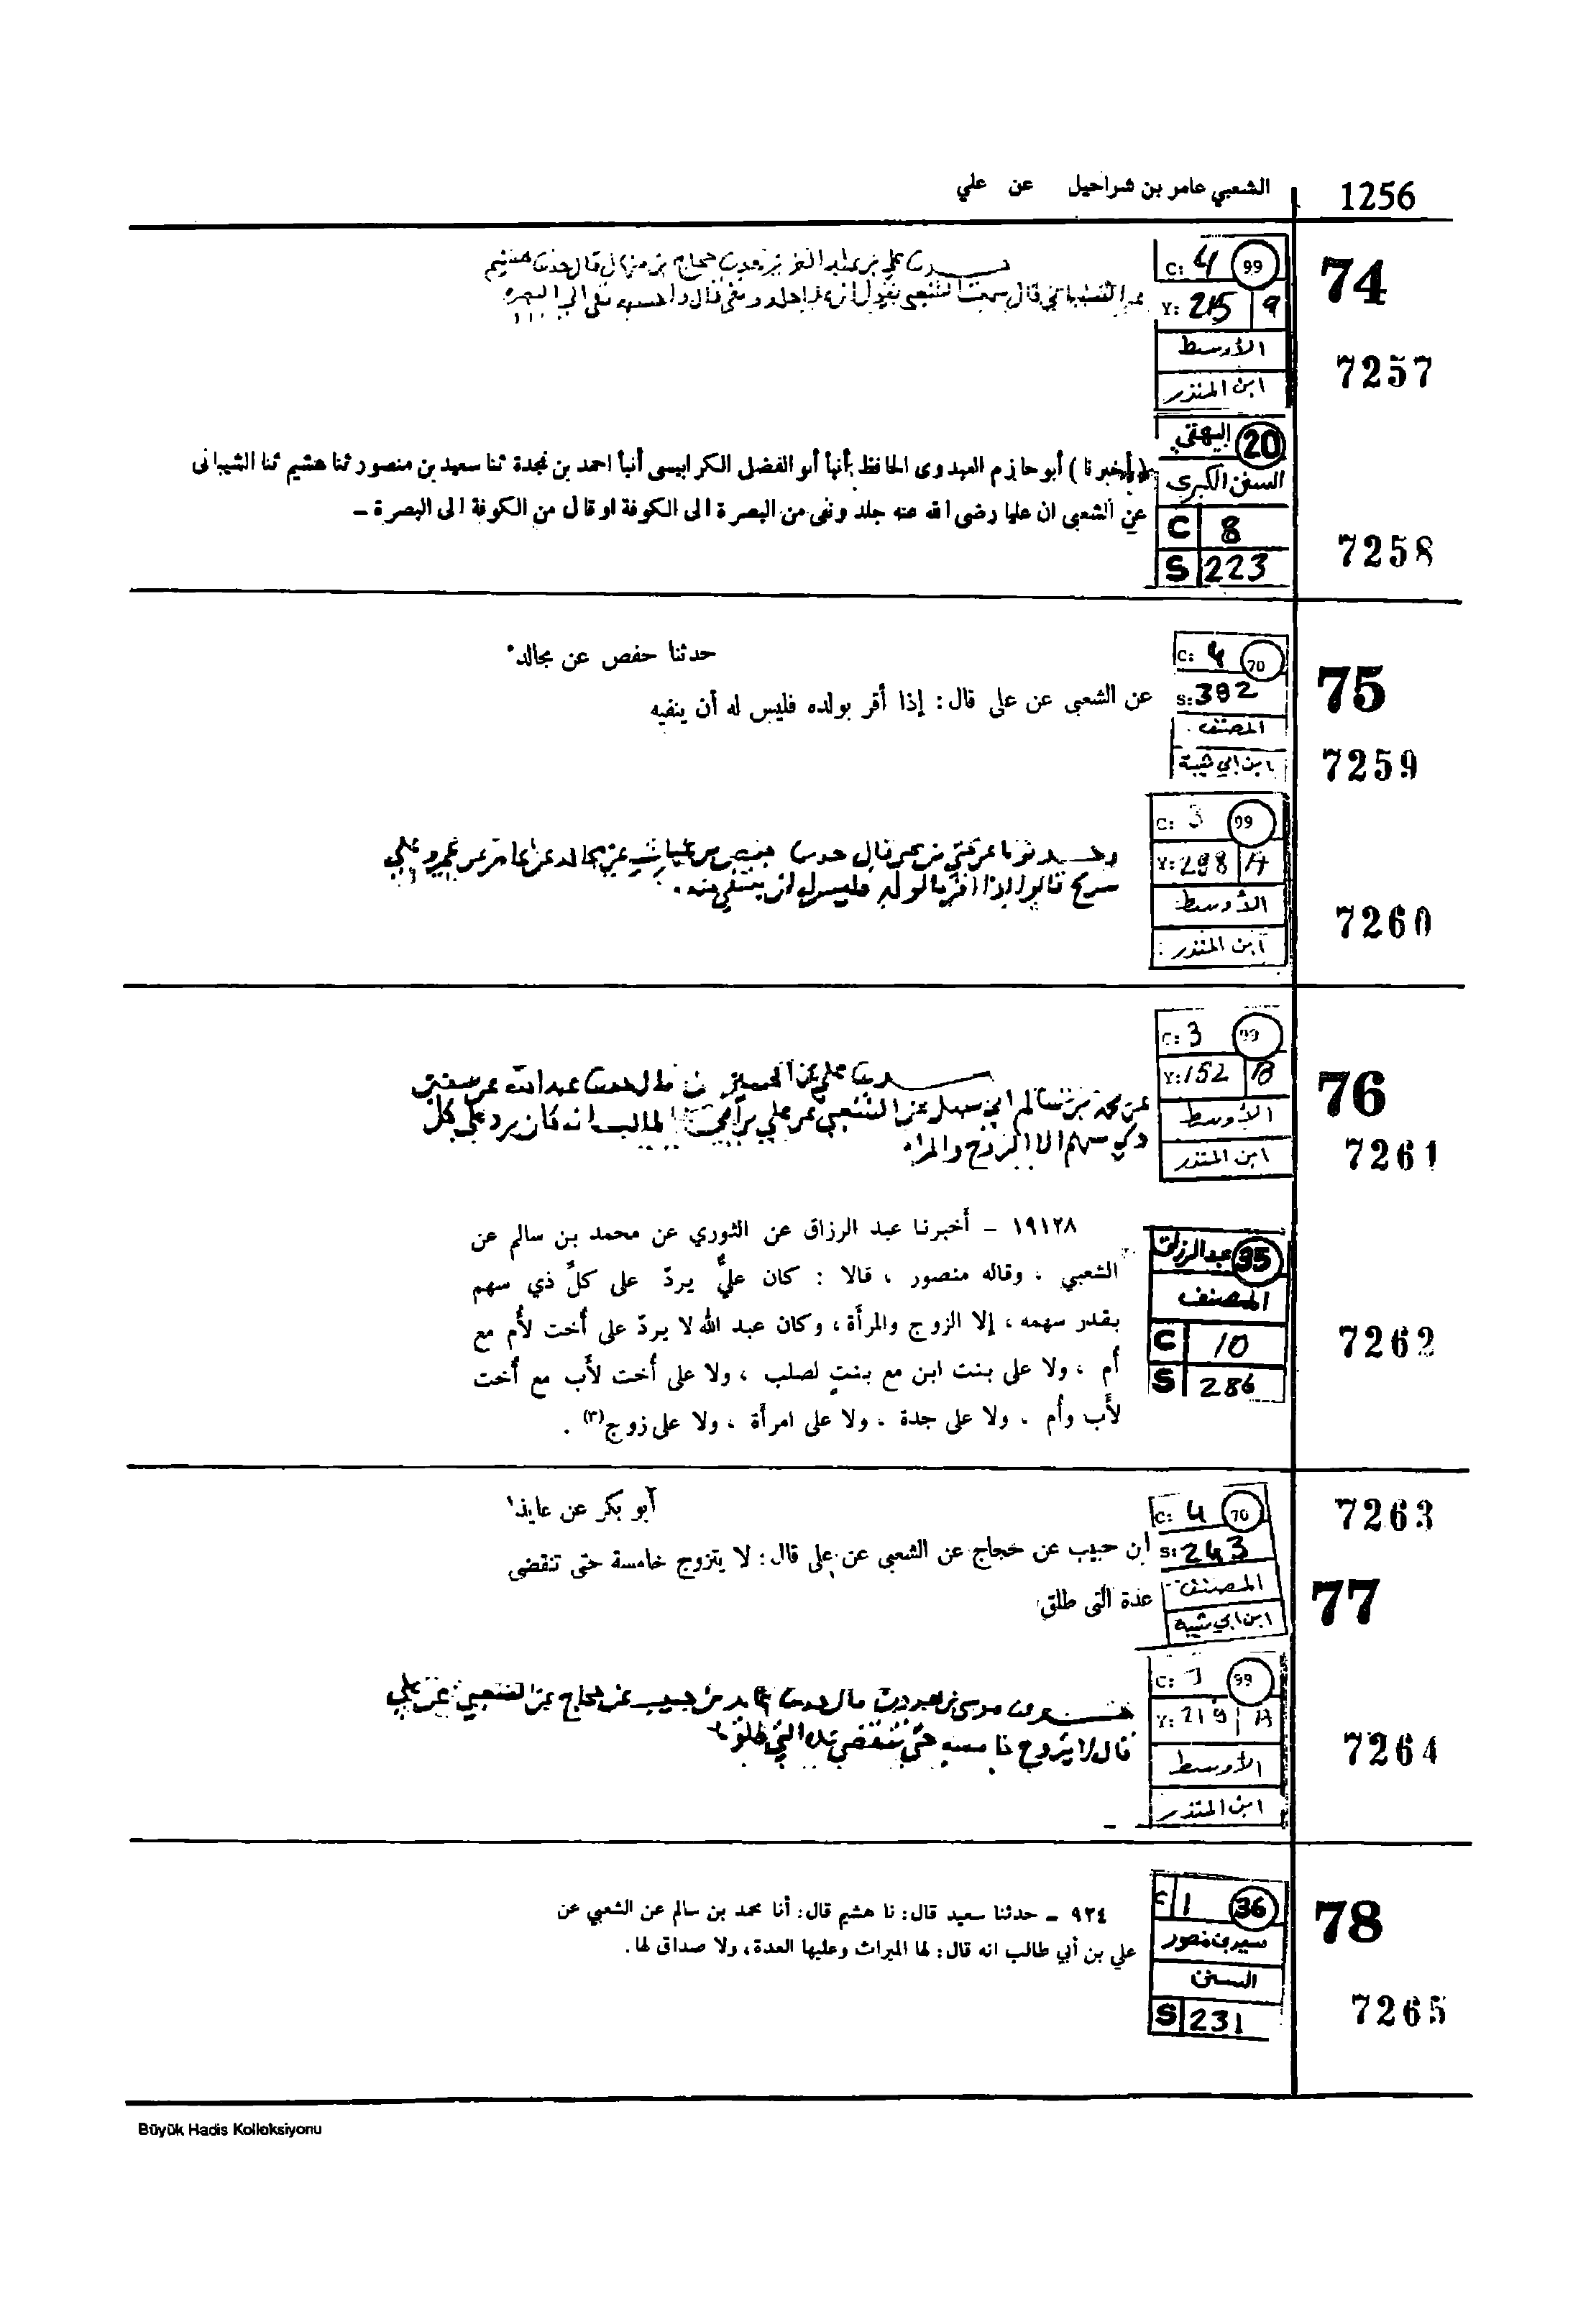 1256
الشعبي عامر بن شراحيل عن علي
74
C: 4 99
Y: 215 9
الأوسط
ابن المنذر
7257
حدثنا علي بن عبد العزيز حجاج بن منهال قال حدثنا هشيم
الشيباني قال سمعت الشعبي يقول ان عليا جلد ونفى قال واحسبه نفى الى البصرة
البيهقي 20
السنن الكبرى
C 8
S 223
7258
(أخبرنا) أبو حازم العبدوى الحافظ أنبأ أبو الفضل الكرابيسى أنبأ احمد بن نجدة ثنا سعيد بن منصور ثنا هشيم ثنا الشيبانى
عن الشعبى ان عليا رضى الله عنه جلد ونفى من البصرة الى الكوفة او قال من الكوفة الى البصرة ـ
75
C: 4 70
S: 392
المصنف
ابن ابي شيبة
7259
حدثنا حفص عن مجالد
عن الشعبى عن على قال: إذا أقر بولده فليس له أن ينفيه
C: 3 99
Y: 298 A
الأوسط
ابن المنذر
7260
حفص بن غياث عن مجالد عن عامر عن عمر وعلي
قالوا اذا اقر بالولد فليس له ان ينتفي منه.
76
C: 3 99
Y: 152 B
الأوسط
ابن المنذر
7261
قال حدثنا عبد الله عن سفين
عن محمد بن سالم ابي سهل عن الشعبي عن علي بن ابي طالب انه كان يرد على كل
ذي سهم الا الزوج والمراه
عبد الرزاق 35
المصنف
C 10
S 286
7262
١٩١٢٨ ـ أخبرنا عبد الرزاق عن الثوري عن محمد بن سالم عن
الشعبي ، وقاله منصور ، قالا : كان عليٌّ يردّ على كلِّ ذي سهم
بقدر سهمه ، إلا الزوج والمرأة ، وكان عبد الله لا يردّ على أخت لأم مع
أم ، ولا على بنت ابن مع بنتٍ لصلب ، ولا على أخت لأب مع أخت
لأب وأم ، ولا على جدة ، ولا على امرأة ، ولا على زوج(٣) .
7263
77
C: 4 70
S: 243
المصنف
ابن ابي شيبه
أبو بكر عن عايذ
ابن حبيب عن حجاج عن الشعبي عن علي قال: لا يتزوج خامسة حتى تنقضى
عدة التى طلق
C: 99
Y: 219 A
الأوسط
ابن المنذر
7264
حدثنا موسى بن هرون قال حدثنا عايذ بن حبيب عن حجاج عن الشعبي عن علي
قال لا يتزوج خامسه حتى تنقضي عده التي طلق
78
C 1 36
سعيد بن منصور
السنن
S 231
7265
٩٢٤ ـ حدثنا سعيد قال: نا هشيم قال: أنا محمد بن سالم عن الشعبي عن
علي بن أبي طالب انه قال: لها الميراث وعليها العدة، ولا صداق لها.
Büyük Hadis Kolleksiyonu